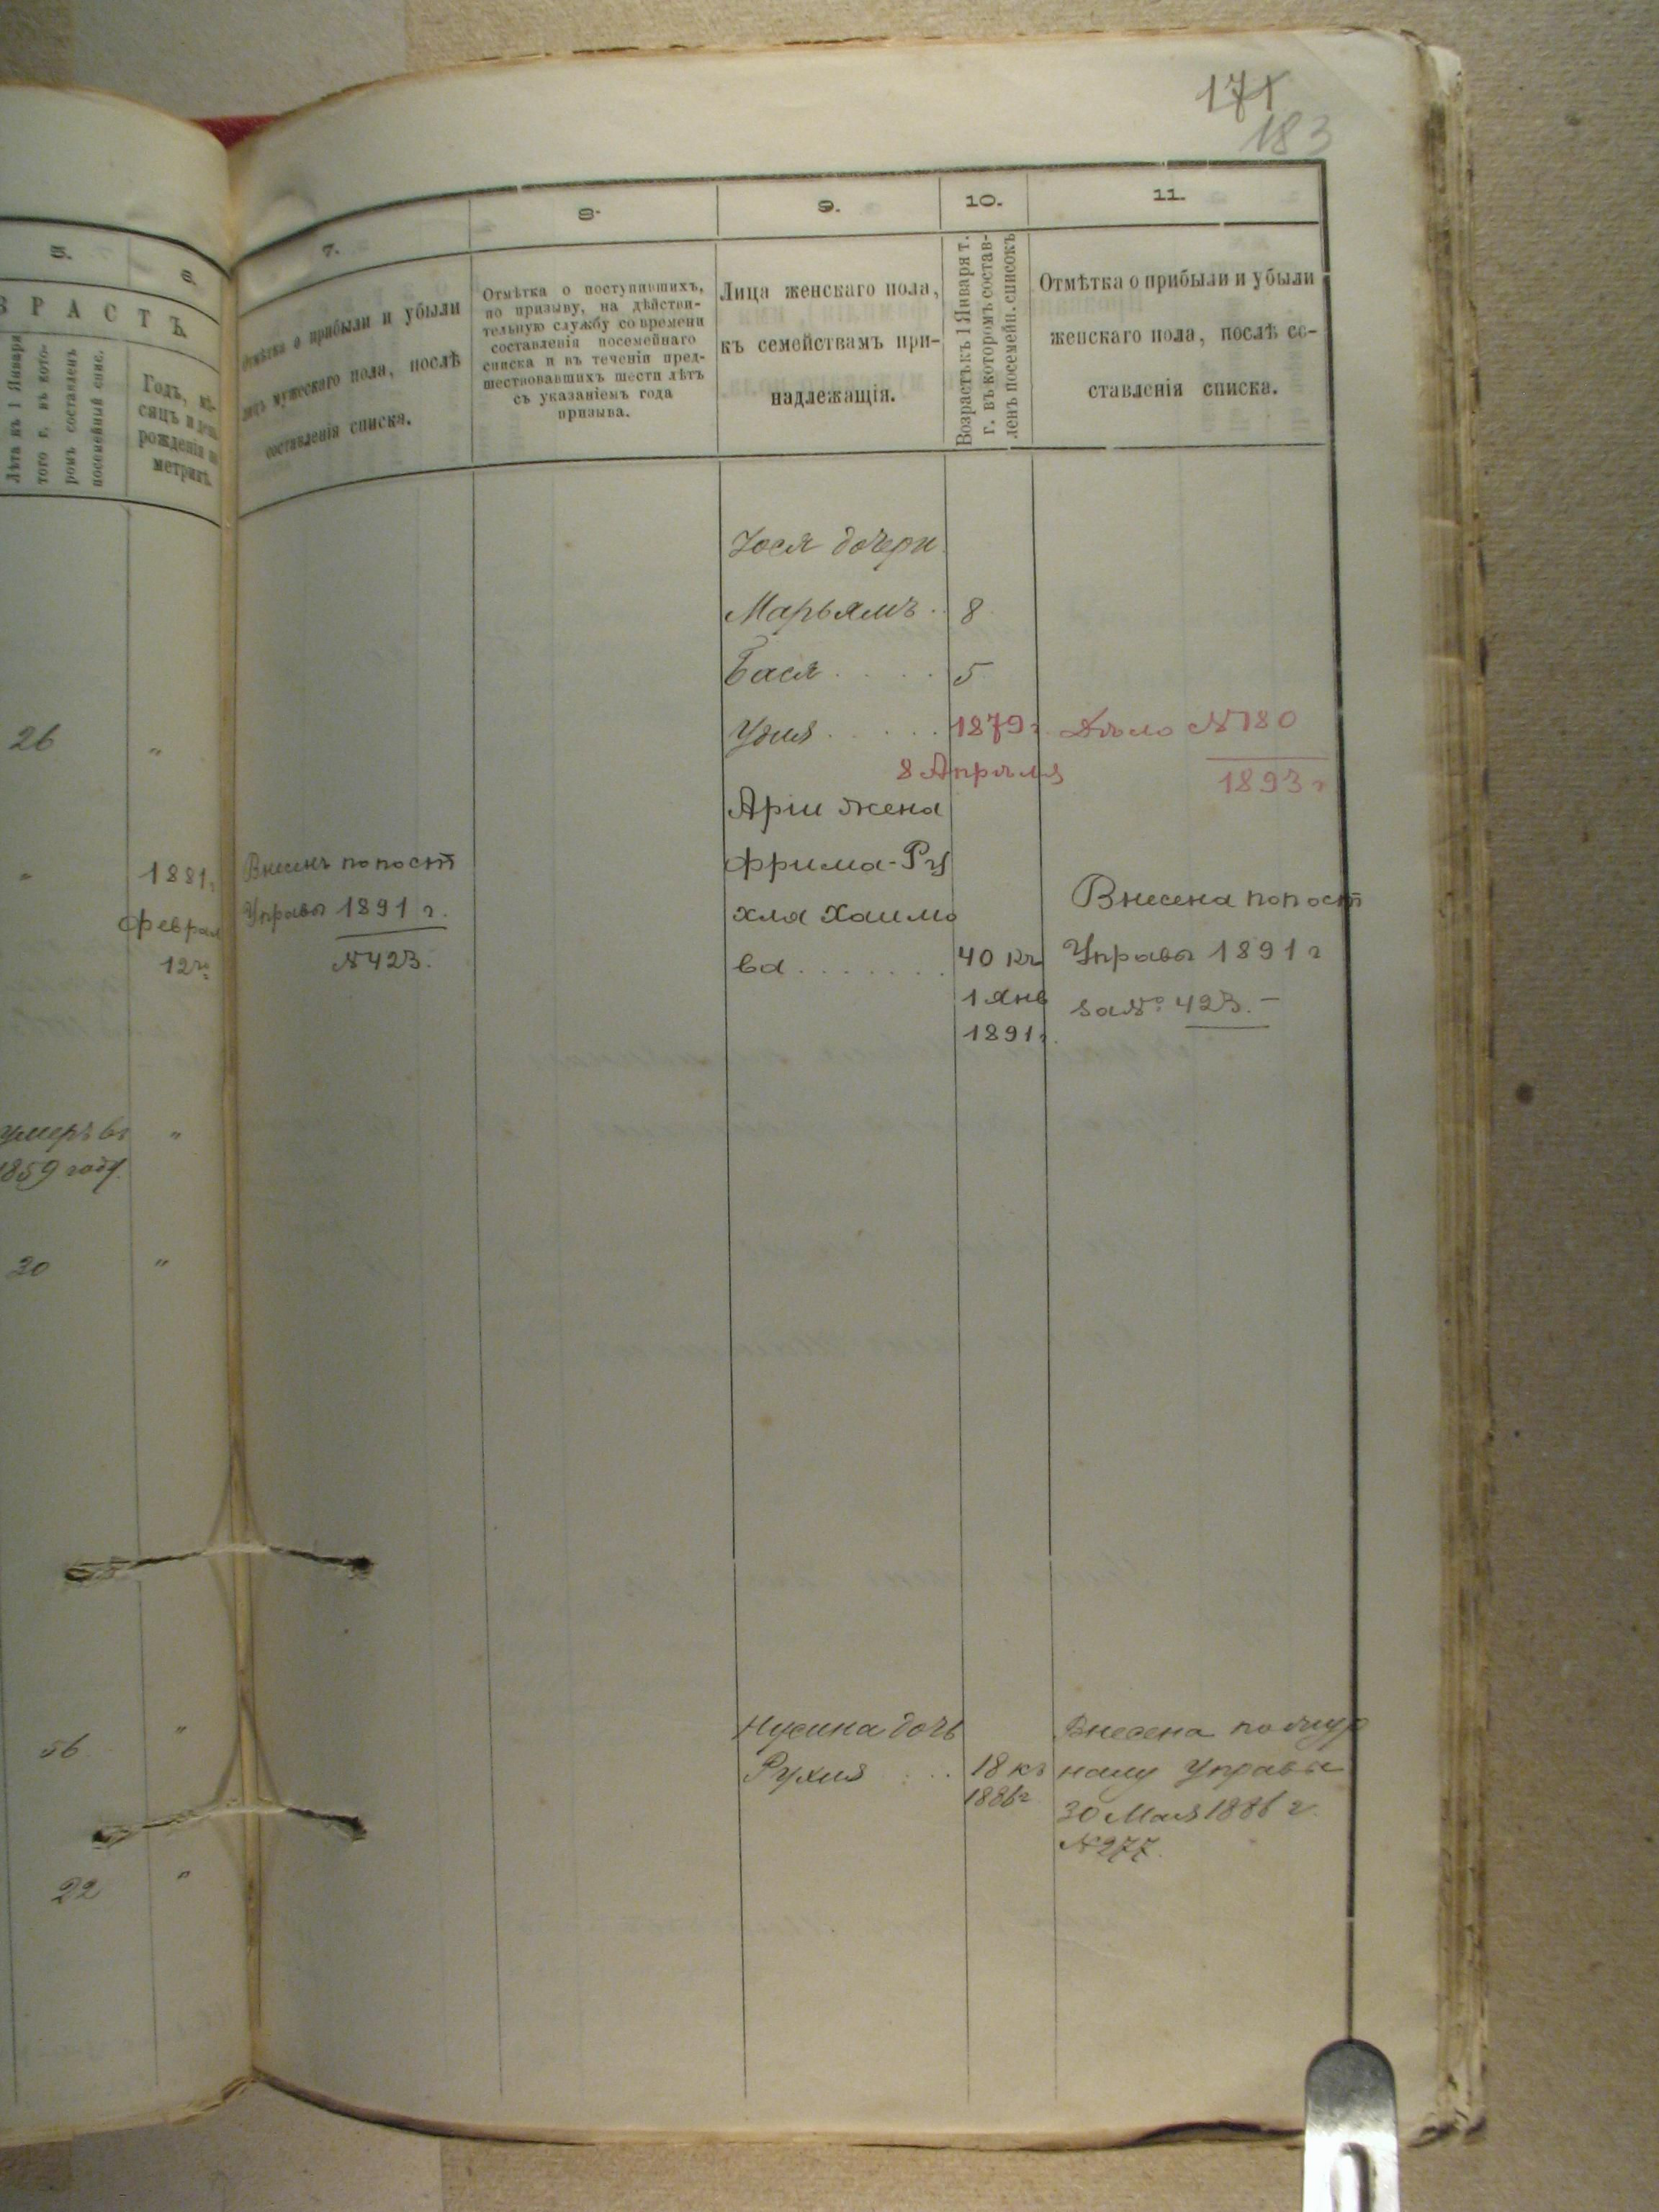 171
183
5.
6.
7.
8.
9.
10.
11.
ЗРАСТЪ
Лѣта къ 1 Января
того г. въ кото-
ромъ составленъ
посемейный спис.
Годъ, мѣ-
сяцъ и день
рожденія по
метрикѣ.
Отмѣтка о прибыли и убыли
лицъ мужескаго пола, послѣ
составленія списка.
Отмѣтка о поступившихъ,
по призыву, на дѣйстви-
тельную службу со времени
составленія посемейнаго
списка и въ теченіи пред-
шествовавшихъ шести лѣтъ
съ указаніемъ года
призыва.
Лица женскаго пола,
къ семействамъ при-
надлежащія.
Возрастъ къ 1 Января т.
г. въ которомъ состав-
ленъ посемейн. списокъ
Отмѣтка о прибыли и убыли
женскаго пола, послѣ со-
ставленія списка.
дочери
Марьямъ . 8
Бася . . . . . 5
Удия . . . . . 1879 г. Дѣло №180
8 Апрѣля 1893 г
26 "
Арiи жена
Фрима-Ру
хля Хаимо
ва . . . . . . . 40 къ
1 Янв
1891 г.
Внесена по пост
Управы 1891 г
за № 423. —
" 1881 г
Феврал
12 го
Внесенъ по пост
Управы 1891 г.
№423.
умеръ въ "
1859 году.
30 "
56 "
22 "
Нусина дочь
Рухля . . . 18 къ
1886 г
Внесена по жур
налу Управы
30 Мая 1886 г.
№277.